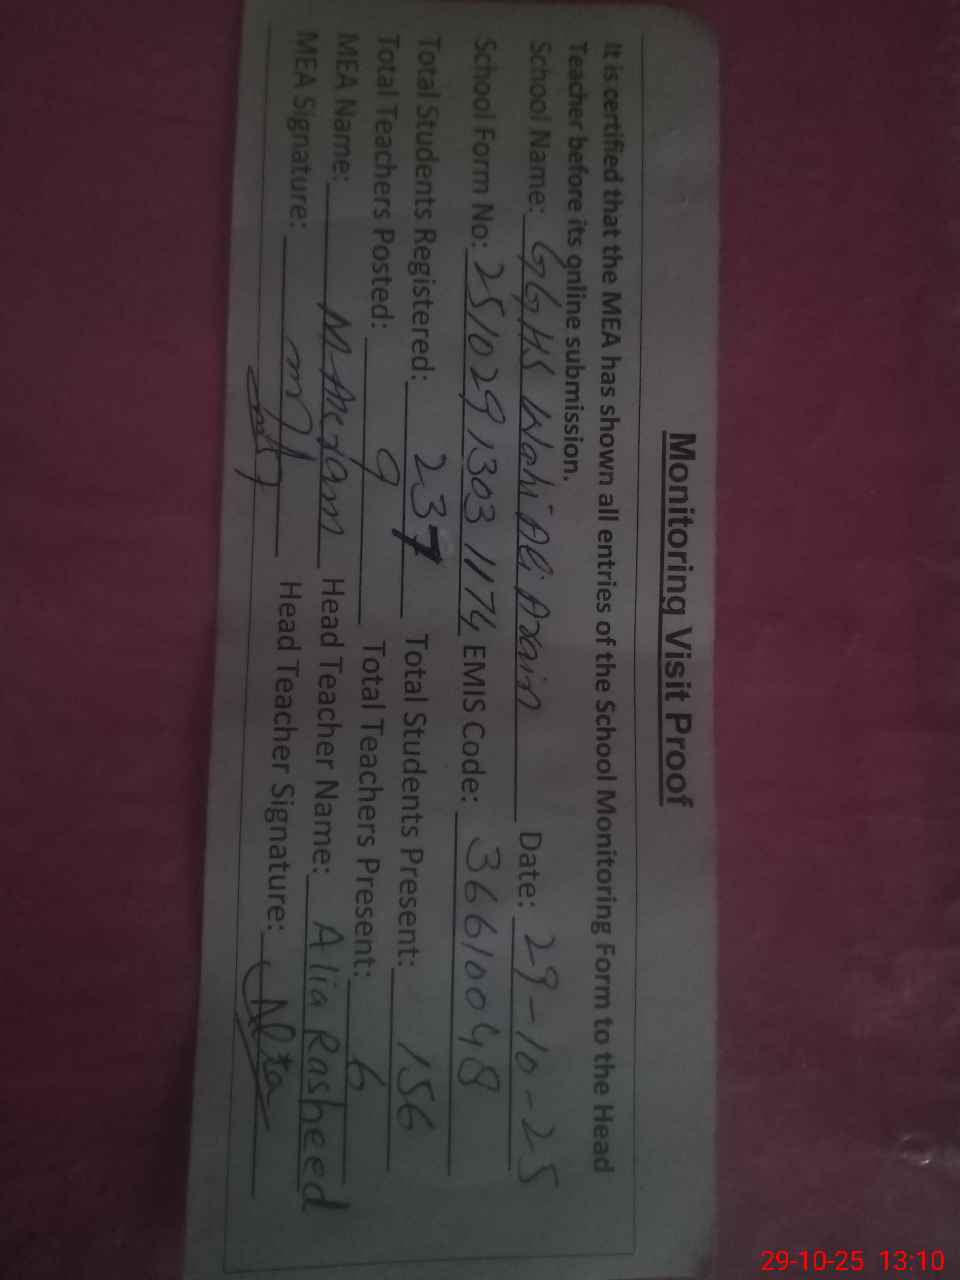 Monitoring Visit Proof
It is certified that the MEA has shown all entries of the School Monitoring Form to the Head
Teacher before its online submission.
School Name: GGHS Wahi Ali Arain Date: 29-10-25
School Form No: 25102913031174 EMIS Code: 36610048
Total Students Registered: 237 Total Students Present: 156
Total Teachers Posted: 9 Total Teachers Present: 6
MEA Name: M Akram Head Teacher Name: Alia Rasheed
MEA Signature: Head Teacher Signature:
29-10-25 13:10